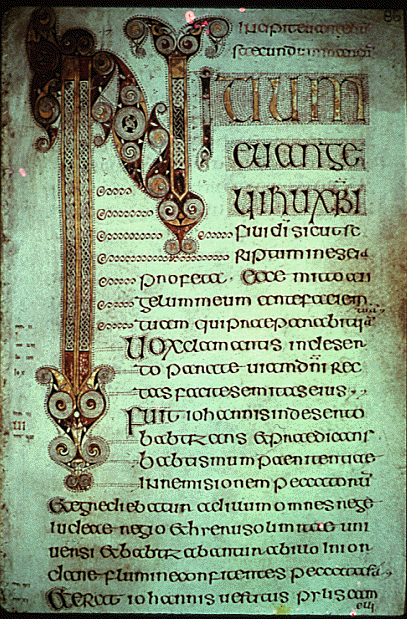 86
Incipit evangelium
secundum
INITIUM
EUANGE
LII IHU XRI
FILII DI SICUT SC
RIPTUM IN ESEIA
profeta Ecce mitto an
gelum meum ante faciem
tuam qui praeparabit uia
tuā
Uox clamantis in deser
to parate uiam dni rec
tas facite semitas eius
Fuit iohannis in deserto
babtizans et praedicans
babtismum paenitentiae
in remisionem peccatorū
Et egrediebatur ad illum omnes rege
iudeae regio et hierusolimitae uni
uersi et babtizabantur ab illo in ior
dane flumine confitentes peccata sā
Et erat iohannis uestitus pylis cam